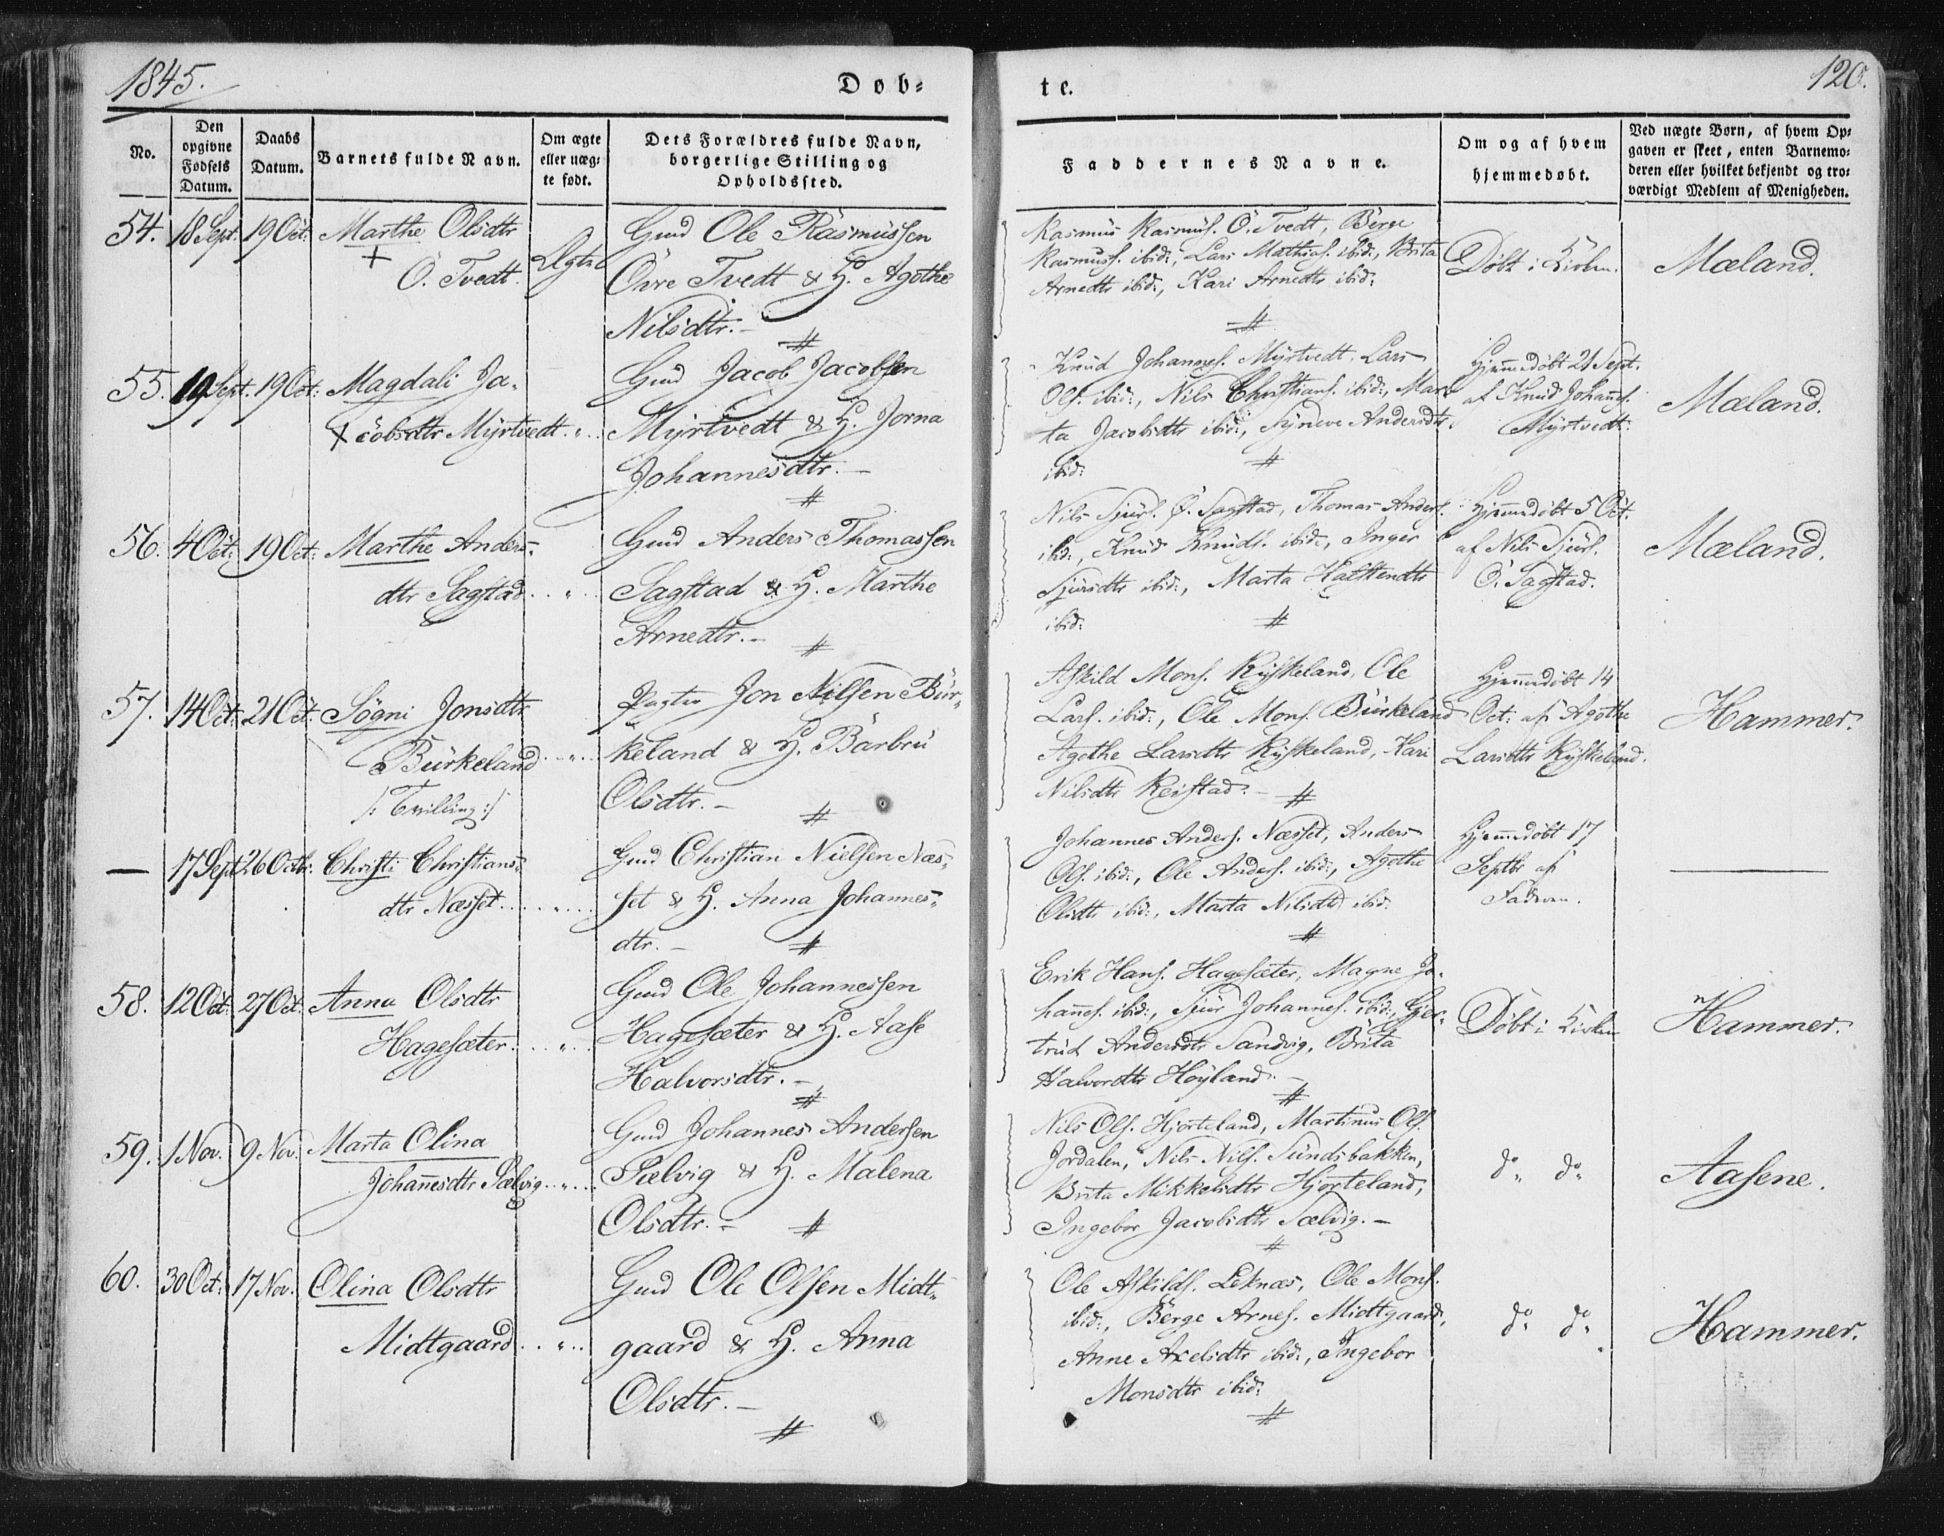 1845.
Døb-
te.
120.
No.
Den opgivne Fødsels Datum.
Daabs Datum.
Barnets fulde Navn.
Om ægte eller uæg-te født.
Dets Forældres fulde Navn, borgerlige Stilling og Opholdssted.
Faddernes Navne.
Om og af hvem hjemmedøbt.
Ved uægte Børn, af hvem Op-gaven er skeet, enten Barnemo-deren eller hvilket bekjendt og tro-værdigt Medlem af Menigheden.
54. 18 Sept. 19 Oct: Marthe Olsdtr
Ö. Tvedt.
Ægte
Gmd Ole Rasmussen
Övre Tvedt & H. Agothe
Nilsdtr.-
Rasmus Rasmus. Ö. Tvedt, Börge
Rasmuss. ibid:, Lars Mathias. ibid:, Brita
Arnedtr ibid:, Kari Arnedtr ibid:
Døbt i Kirken.
Mæland.
55. 19 Sept. 19 Oct: Magdali Ja-
cobsdtr Myrtvedt
Gmd Jacob Jacobsen
Myrtvedt & H. Jorna
Johannesdtr.-
Knud Johannes. Myrtvedt. Lars
Ols. ibid:, Nils Christians. ibid:, Mar-
ta Jacobsdtr ibid:, Synneve Andersdtr
ibid:
Hjemmedøbt 21 Sept.
af Knud Johannes.
Myrtvedt.
Mæland.
56. 4 Oct: 19 Oct: Marthe Anders-
dtr Sagstad
Gmd Anders Thomassen
Sagstad & H. Marthe
Arnedtr.-
Nils Sjurs. Ö. Sagstad, Thomas Anders.
ibid:, Knud Knuds. ibid:, Inger
Sjursdtr ibid:, Marta Halstendtr
ibid:
Hjemmedøbt 5 Oct.
af Nils Sjurs.
Ö. Sagstad.
Mæland.
57. 14 Oct: 21 Oct: Sögni Jonsdtr
Bürkeland
/: Tvilling :/
Pagter Jon Nilsen Bür-
keland & H. Barbru
Olsdtr.-
Askild Mons. Ryskeland, Ole
Lars. ibid:, Ole Mons. Bürkeland
Agothe Larsdtr Ryskeland, Kari
Nilsdtr Reistad.-
Hjemmedøbt 14
Oct: af Agothe
Larsdtr Ryskeland.
Hammer.
— 17 Sept 26 Octbr: Christi Christians-
dtr Næsset
Gmd Christian Nielsen Næs-
set & H. Anna Johannes-
dtr.-
Johannes Anders. Næsset, Anders
Ols. ibid:, Ole Anders. ibid:, Agothe
Olsdtr ibid:, Marta Nilsdtr ibid:
Hjemmedøbt 17
Septbr af
Faderen.
58. 12 Oct: 27 Oct: Anna Olsdtr
Hagesæter
Gmd Ole Johannessen
Hagesæter & H. Aase
Halvorsdtr.-
Erik Hans. Hagesæter, Magne Jo-
hannes. ibid:, Sjur Johannes. ibid:, Gjer-
trud Andersdtr Sandvig, Brita
Halvordtr Høyland.-
Døbt i Kirken
Hammer.
59. 1 Nov. 9 Nov. Marta Olina
Johannesdtr Sælvig
Gmd Johannes Andersen
Sælvig & H. Malena
Olsdtr.-
Nils Ols. Hjorteland, Martinus Ols.
Jordalen, Nils Nils. Sundsbakken,
Brita Mikkelsdtr Hjorteland,
Ingebor Jacobsdtr Sælvig.-
do do
Aasene.
60. 30 Oct: 17 Nov. Olina Olsdtr
Midtgaard
Gmd Ole Olsen Midt-
gaard & H. Anna
Olsdtr.-
Ole Askilds. Leknæs, Ole Mons.
ibid:, Börge Arnes. Midtgaard,
Anne Axelsdtr ibid:, Ingebor
Monsdtr ibid:
do do
Hammer.